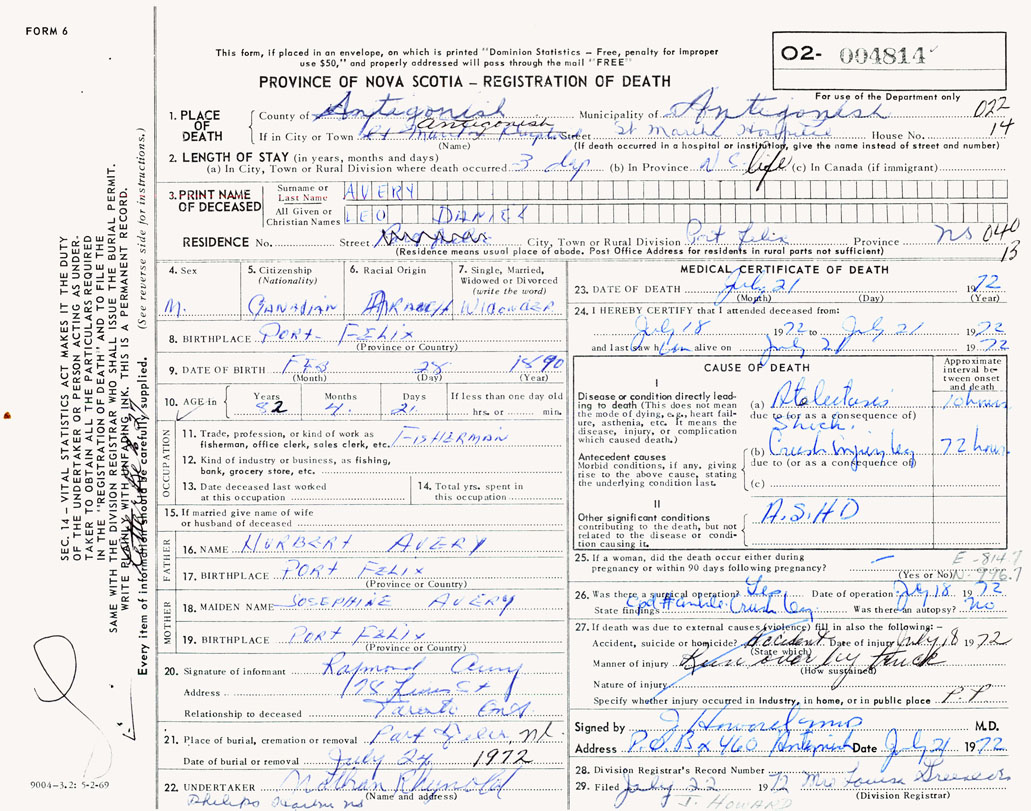 FORM 6
This form, if placed in an envelope, on which is printed "Dominion Statistics – Free, penalty for improper
use $50," and properly addressed will pass through the mail "FREE"
PROVINCE OF NOVA SCOTIA – REGISTRATION OF DEATH
O2- 004814
For use of the Department only
022
14
1. PLACE OF DEATH
County of Antigonish Municipality of Antigonish
If in City or Town Antigonish Street St Martha Hospital House No.
(Name) (If death occurred in a hospital or institution, give the name instead of street and number)
2. LENGTH OF STAY (in years, months and days)
(a) In City, Town or Rural Division where death occurred 3 dys (b) In Province N S life (c) In Canada (if immigrant)
3. PRINT NAME OF DECEASED
Surname or Last Name AVERY
All Given or Christian Names LEO DANIEL
RESIDENCE No. Street City, Town or Rural Division Port Felix Province NS 040
13
(Residence means usual place of abode. Post Office Address for residents in rural parts not sufficient)
4. Sex
M.
5. Citizenship
(Nationality)
CANADIAN
6. Racial Origin
FRENCH
7. Single, Married,
Widowed or Divorced
(write the word)
WIDOWER
8. BIRTHPLACE PORT FELIX
(Province or Country)
9. DATE OF BIRTH FEB 28 1890
(Month) (Day) (Year)
10. AGE in
Years Months Days If less than one day old
82 4. 21 hrs. or min.
OCCUPATION
11. Trade, profession, or kind of work as
fisherman, office clerk, sales clerk, etc. FISHERMAN
12. Kind of industry or business, as fishing,
bank, grocery store, etc.
13. Date deceased last worked
at this occupation
14. Total yrs. spent in
this occupation
15. If married give name of wife
or husband of deceased
FATHER
16. NAME HURBERT AVERY
17. BIRTHPLACE PORT FELIX
(Province or Country)
MOTHER
18. MAIDEN NAME JOSEPHINE AVERY
19. BIRTHPLACE PORT FELIX
(Province or Country)
20. Signature of informant Raymond Avery
Address 178
Toronto Ont.
Relationship to deceased
21. Place of burial, cremation or removal Port Felix NS.
Date of burial or removal July 24 1972
22. UNDERTAKER Nathan Rhynold
(Name and address)
MEDICAL CERTIFICATE OF DEATH
23. DATE OF DEATH July 21 1972
(Month) (Day) (Year)
24. I HEREBY CERTIFY that I attended deceased from:
July 18 1972 to July 21 1972
and last saw him alive on July 21 1972
CAUSE OF DEATH
Approximate
interval be-
tween onset
and death
I
Disease or condition directly lead-
ing to death (This does not mean
the mode of dying, e.g., heart fail-
ure, asthenia, etc. It means the
disease, injury, or complication
which caused death.)
(a) Atelectasis 10 hours
due to (or as a consequence of)
Shock.
Antecedent causes
Morbid conditions, if any, giving
rise to the above cause, stating
the underlying condition last.
(b) Crush injury leg 72 hours
due to (or as a consequence of)
(c)
II
Other significant conditions
contributing to the death, but not
related to the disease or condi-
tion causing it.
A.S.H.D
25. If a woman, did the death occur either during
pregnancy or within 90 days following pregnancy? –
(Yes or No)
E-814.7
26. Was there a surgical operation? Yes Date of operation July 18 1972
State findings Crush leg Was there an autopsy? no
27. If death was due to external causes (violence) fill in also the following:–
Accident, suicide or homicide? Accident Date of injury July 18 1972
(State which)
Manner of injury Run over by truck
(How sustained)
Nature of injury
Specify whether injury occurred in industry, in home, or in public place P.P
Signed by J Howard M.D.
Address P.O. Box 460 Antigonish Date July 21 1972
28. Division Registrar's Record Number
29. Filed July 22 1972 Mrs Louise
(Division Registrar)
J. HOWARD
SEC. 14 – VITAL STATISTICS ACT MAKES IT THE DUTY
OF THE UNDERTAKER OR PERSON ACTING AS UNDER-
TAKER TO OBTAIN ALL THE PARTICULARS REQUIRED
IN THE "REGISTRATION OF DEATH" AND TO FILE THE
SAME WITH THE DIVISION REGISTRAR WHO SHALL ISSUE THE BURIAL PERMIT.
WRITE PLAINLY WITH UNFADING INK. THIS IS A PERMANENT RECORD.
Every item of information should be carefully supplied. (See reverse side for instructions.)
9004-3.2: 5-2-69